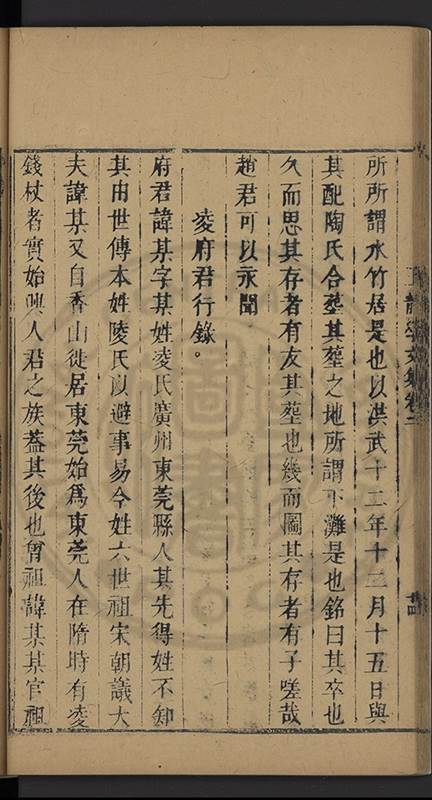 所所謂水竹居是也以洪武十二年十二月十五日與
其配陶氏合塟其塟之地所謂下灘是也銘曰其卒也
久而思其存者有友其塟也幾而圖其存者有子嗟哉
趙君可以永聞
凌府君行錄。
府君諱某字某姓凌氏廣州東莞縣人其先得姓不知
其由世傳本姓陵氏以避事易今姓六世祖宋朝議大
夫諱某又自香山徙居東莞始為東莞人在隋時有凌
錢杖者實始興人君之族葢其後也曾祖諱某某官祖